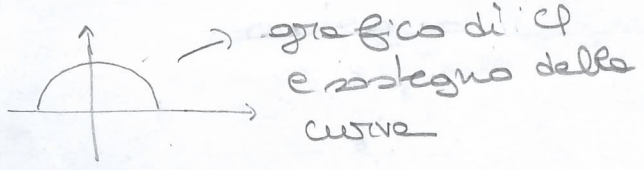 grafico di φ
e sostegno della
curva